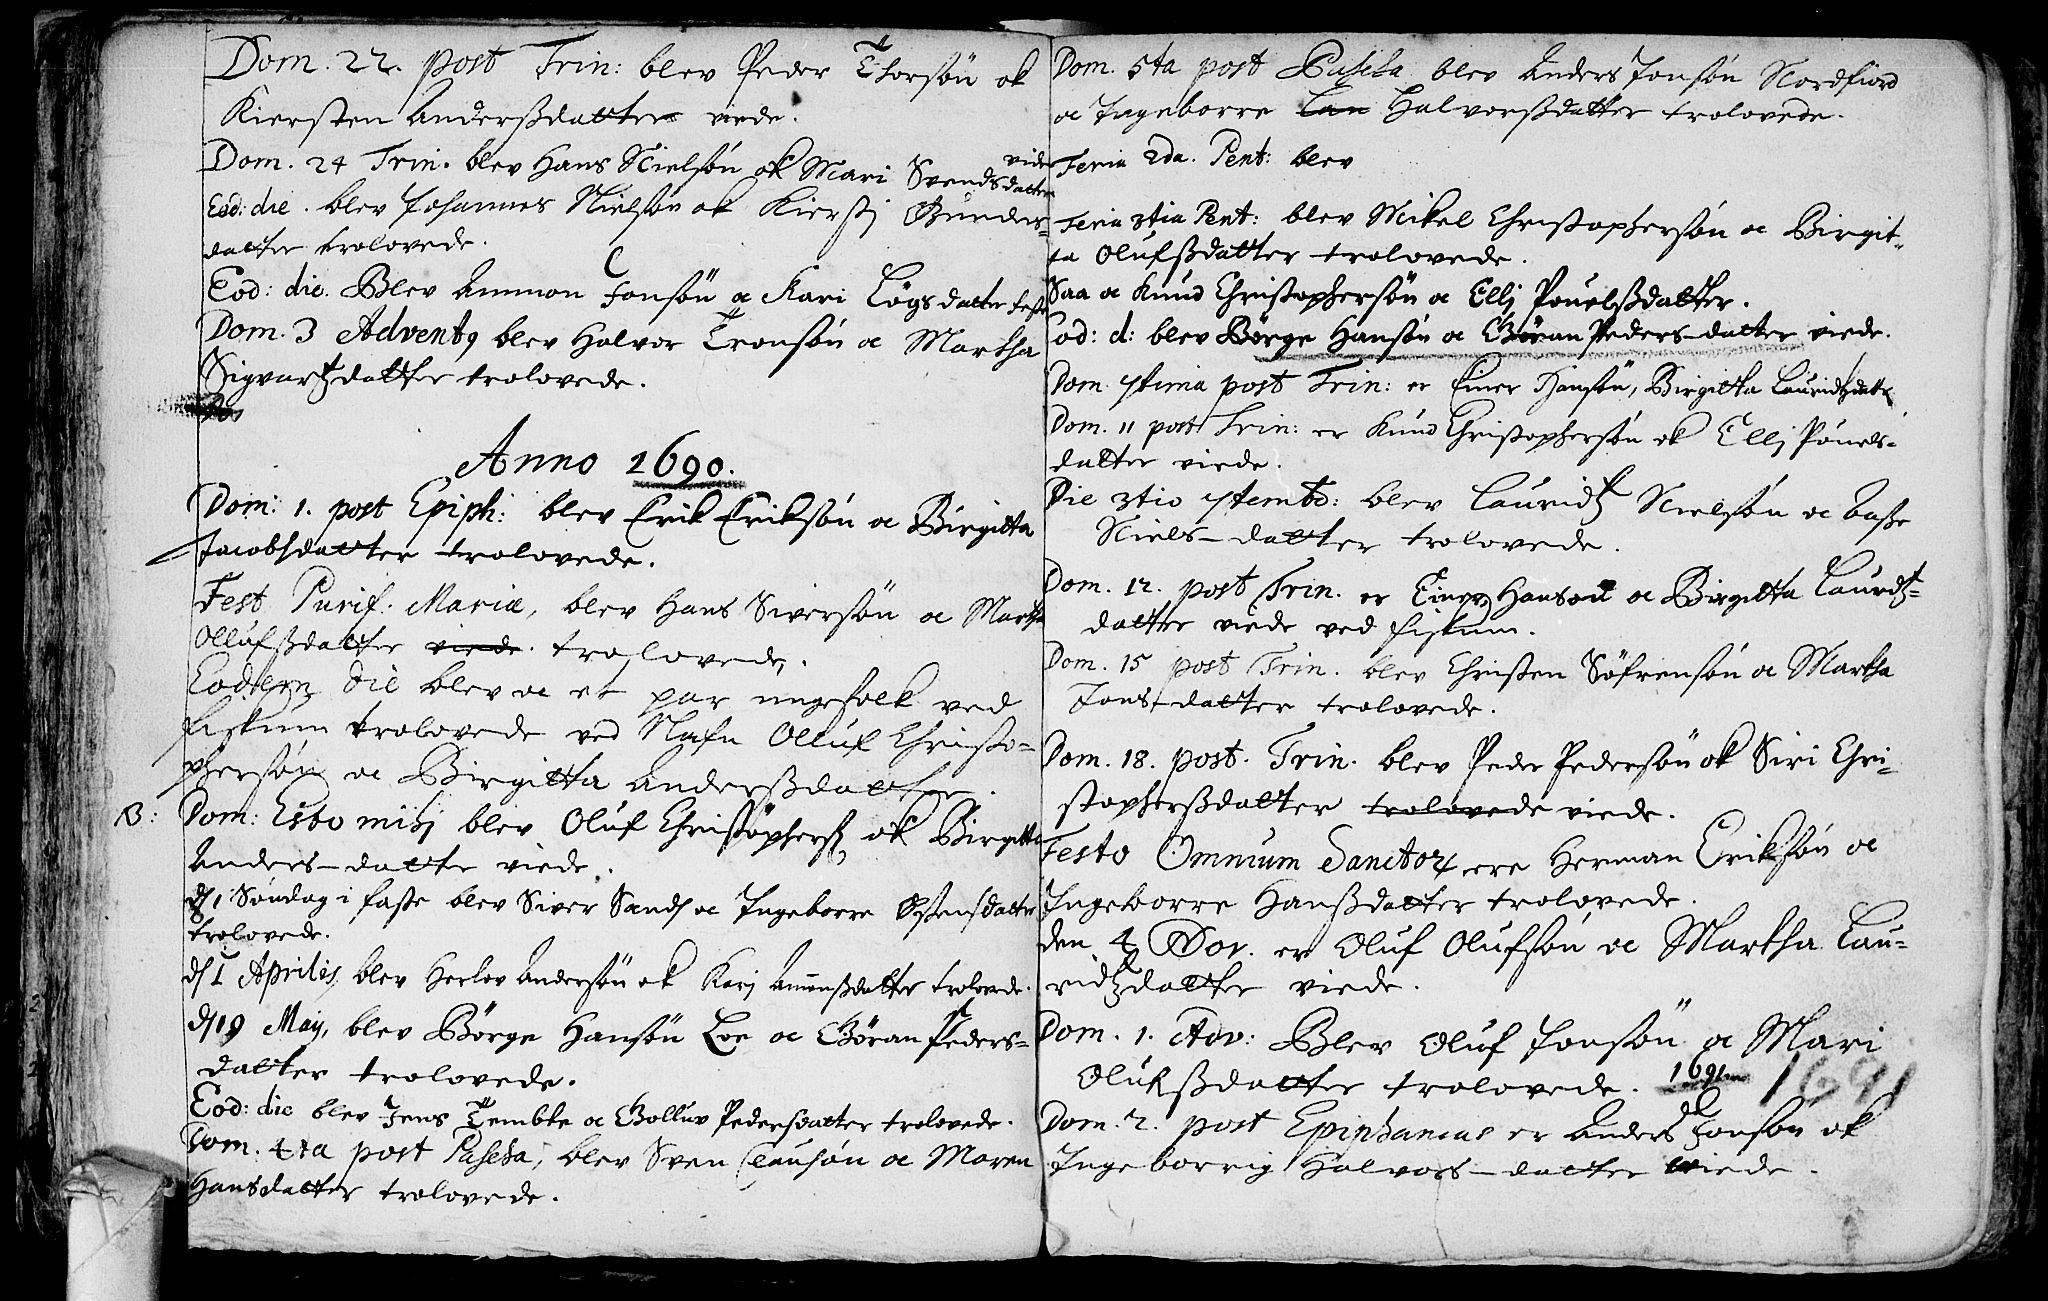 Dom. 22. post Trin: blev Peder Thorsøn ok
Kiersten Anderssdatter viede.
Dom. 24 Trin. blev Hans Nielsøn ok Mari Svendsdatter vide
Eod: die. blev Johannes Nielsøn ok Kiersti Gunders-
datter trolovede.
Eod: die. Blev Ammon Jonsøn oc Kari Løgsdatter feste
Dom. 3 Advent9 blev Halvor Tronsøn oc Martha
Sigvartzdatter trolovede.
Anno 1690.
Dom: 1. post Epiph: blev Erik Eriksøn oc Birgitta
Jacobsdatter trolovede.
Fest Purif: Mariæ, blev Hans Siversøn oc Martha
Ollufssdatter viede. trolovede.
Eodem die blev oc et par ungefolk ved
Fiskum trolovede ved Nafn Olluf Christo-
phersøn oc Birgitta Anderssdatter.
B: Dom: Esto mihj blev Oluf Christophers ok Birgitta
Anders-datter viede.
d/ 1 Søndag i faste blev Siver Sands oc Ingeborre Østensdatter
trolovede.
d/ 1 Aprilis, blev Herlov Andersøn ok Karj Amonssdatter trolovede.
d/ 19 May, blev Børge Hansøn Loe oc Gøran Peders-
datter trolovede.
Eod: die blev Jens Tembte oc Gollur Pedersdatter trolovede.
Dom. 4ta post Pascha, blev Sven Clausøn oc Maren
Hansdatter trolovede.
Dom. 5ta post Pascha blev Anders Jonsøn Nordfiord
oc Ingeborre Lau Halvorssdatter trolovede.
Feria 2da. Pent: blev
Feria 3tia Pent: blev Mikel Christophersøn oc Birgit-
ta Olufssdatter trolovede.
Saa oc Knud Christophersøn oc Ellj Pouelssdatter.
Eod: d: blev Børge Hansøn oc Gøran Peders-datter viede.
Dom. 7tima post Trin: er Einer Hansøn, Birgitta Lauridtzdatter
Dom. 11 post Trin: er Knud Christophersøn ok Ellj Pouels-
datter viede.
Die 3tio 7tembr: blev Lauridtz Nielsøn oc Aasse
Niels-datter trolovede.
Dom. 12. post Trin. er Einer Hansøn oc Birgitta Lauridtz-
datter viede ved Fiskum.
Dom. 15 post Trin. blev Christen Søfrensøn oc Martha
Jons-datter trolovede.
Dom. 18. post. Trin. blev Peder Pedersøn ok Siri Chri-
stopherssdatter trolovede viede.
Festo Omnium Sanctor. ere Herman Eriksøn oc
Ingeborre Hanssdatter trolovede.
den 4 Nov. er Oluf Olufsøn oc Martha Lau-
ridtzdatter viede.
Dom. 1. Adv: Blev Oluf Jonsøn oc Mari
Olufssdatter trolovede. 1691 1691
Dom. 2. post Epiphanias er Anders Jonsøn ok
Ingeborrig Halvors-datter viede.